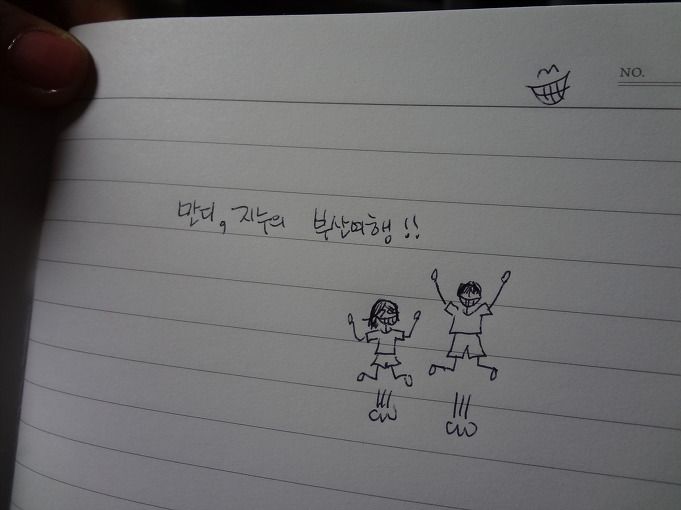 NO.
만디, 지누의 부산여행!!